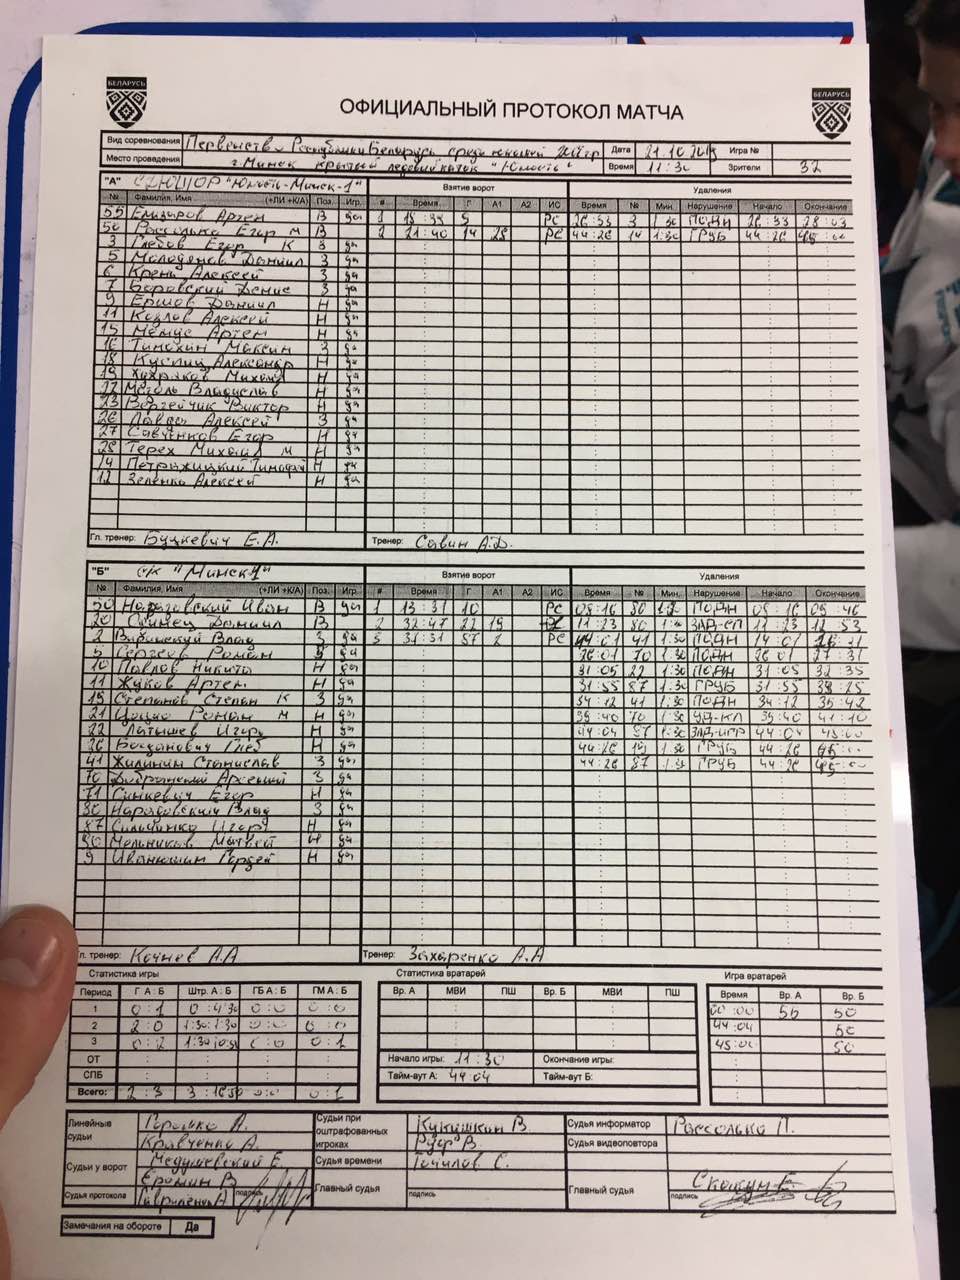 БЕЛАРУСЬ
БЕЛАРУСЬ
ОФИЦИАЛЬНЫЙ ПРОТОКОЛ МАТЧА
Вид соревнования Республики Беларусь среди юношей Дата Игра №
Место проведения г. Минск крытый ледовый каток "Юность" Время 11:30 Зрители 32
"А" СДЮШОР "Юность-Минск-1" Взятие ворот Удаления
№ Фамилия, Имя (+ЛИ +К/А) Поз. Игр. # Время Г А1 А2 ИС Время № Мин. Нарушение Начало Окончание
55 Артем В да 1 5 РС 26:33 3 1.30 ПОДН 26:33 28:03
50 Рассолько Егор М В 2 21:40 14 28 РС 44:26 14 1:30 ГРУБ 44:26
3 Глебов Егор К З да
5 Даниил З да
6 Крень Алексей З да
7 Боровский Денис З да
9 Ершов Даниил Н да
11 Козлов Алексей Н да
15 Мемус Артем Н да
16 Тимохин Максим З да
18 Александр Н да
19 Худяков Михаил Н да
Владислав Н да
23 Виктор Н да
26 Алексей З да
27 Савченков Егор Н да
28 Терех Михаил М Н да
14 Петражицкий Тимофей Н да
12 Зеленко Алексей Н да
Гл. тренер: Буцкевич Е.А. Тренер: Савин А.Д.
"Б" СК "Минск" Взятие ворот Удаления
№ Фамилия, Имя (+ЛИ +К/А) Поз. Игр. # Время Г А1 А2 ИС Время № Мин. Нарушение Начало Окончание
50 Иван В да 1 13:31 10 РС 05:16 80 ПОДН 05:16
20 Даниил В 2 32:47 22 19 11:23 80 11:23 12:53
2 Влад З да 3 57 2 РС 41 1.30 ПОДН 14:01
5 Сергеев Роман З да 26:01 70 1.30 ПОДН 26:01 27:31
10 Павлов Никита Н да 31:05 22 1.30 ПОДН 31:05 32:35
11 Жуков Артем Н да 31:55 87 1:30 ГРУБ 31:55
19 Степанов Степан К З да 34:12 41 1.30 ПОДН 34:12 35:42
21 Роман М Н да 39:40 70 1:30 УД-КЛ 39:40 41:10
22 Латышев Игорь Н да 44:04 87 1.30 44:04
26 Богданович Глеб Н да 44:26 19 1.30 ГРУБ 44:26
41 Жилинин Станислав З да 44:26 87 ГРУБ 44:26
70 Арсений З да
71 Синкевич Егор Н да
80 Влад З да
87 Игорь Н да
90 Мельников Матвей Н да
9 Иванюшин Гордей Н да
Гл. тренер: Кочнев А.А Тренер: Захаренко А.А
Статистика игры Статистика вратарей Игра вратарей
Период Г А : Б Штр. А : Б ГБ А : Б ГМ А : Б Вр. А МВИ ПШ Вр. Б МВИ ПШ Время Вр. А Вр. Б
1 0 : 1 0 : 4.30 0 : 0 0 : 0 00:00 55 50
2 2 : 0 0 : 0 0 : 0 44:04 50
3 0 : 2 0 : 0 0 : 1 45:00 50
ОТ Начало игры: 11:30 Окончание игры:
СПБ Тайм-аут А: 44:04 Тайм-аут Б:
Всего: 2 : 3 0 : 0 0 : 1
Линейные судьи Горошко А.
Кравченко А.
Судьи при оштрафованных игроках Кукушкин В.
В.
Судья информатор Рассолько П.
Судья видеоповтора
Судьи у ворот Медушевский Е.
Еромин В
Судья времени Точилов С.
Судья протокола Гавриленко А подпись
Главный судья подпись
Главный судья Скакун Е. подпись
Замечания на обороте Да